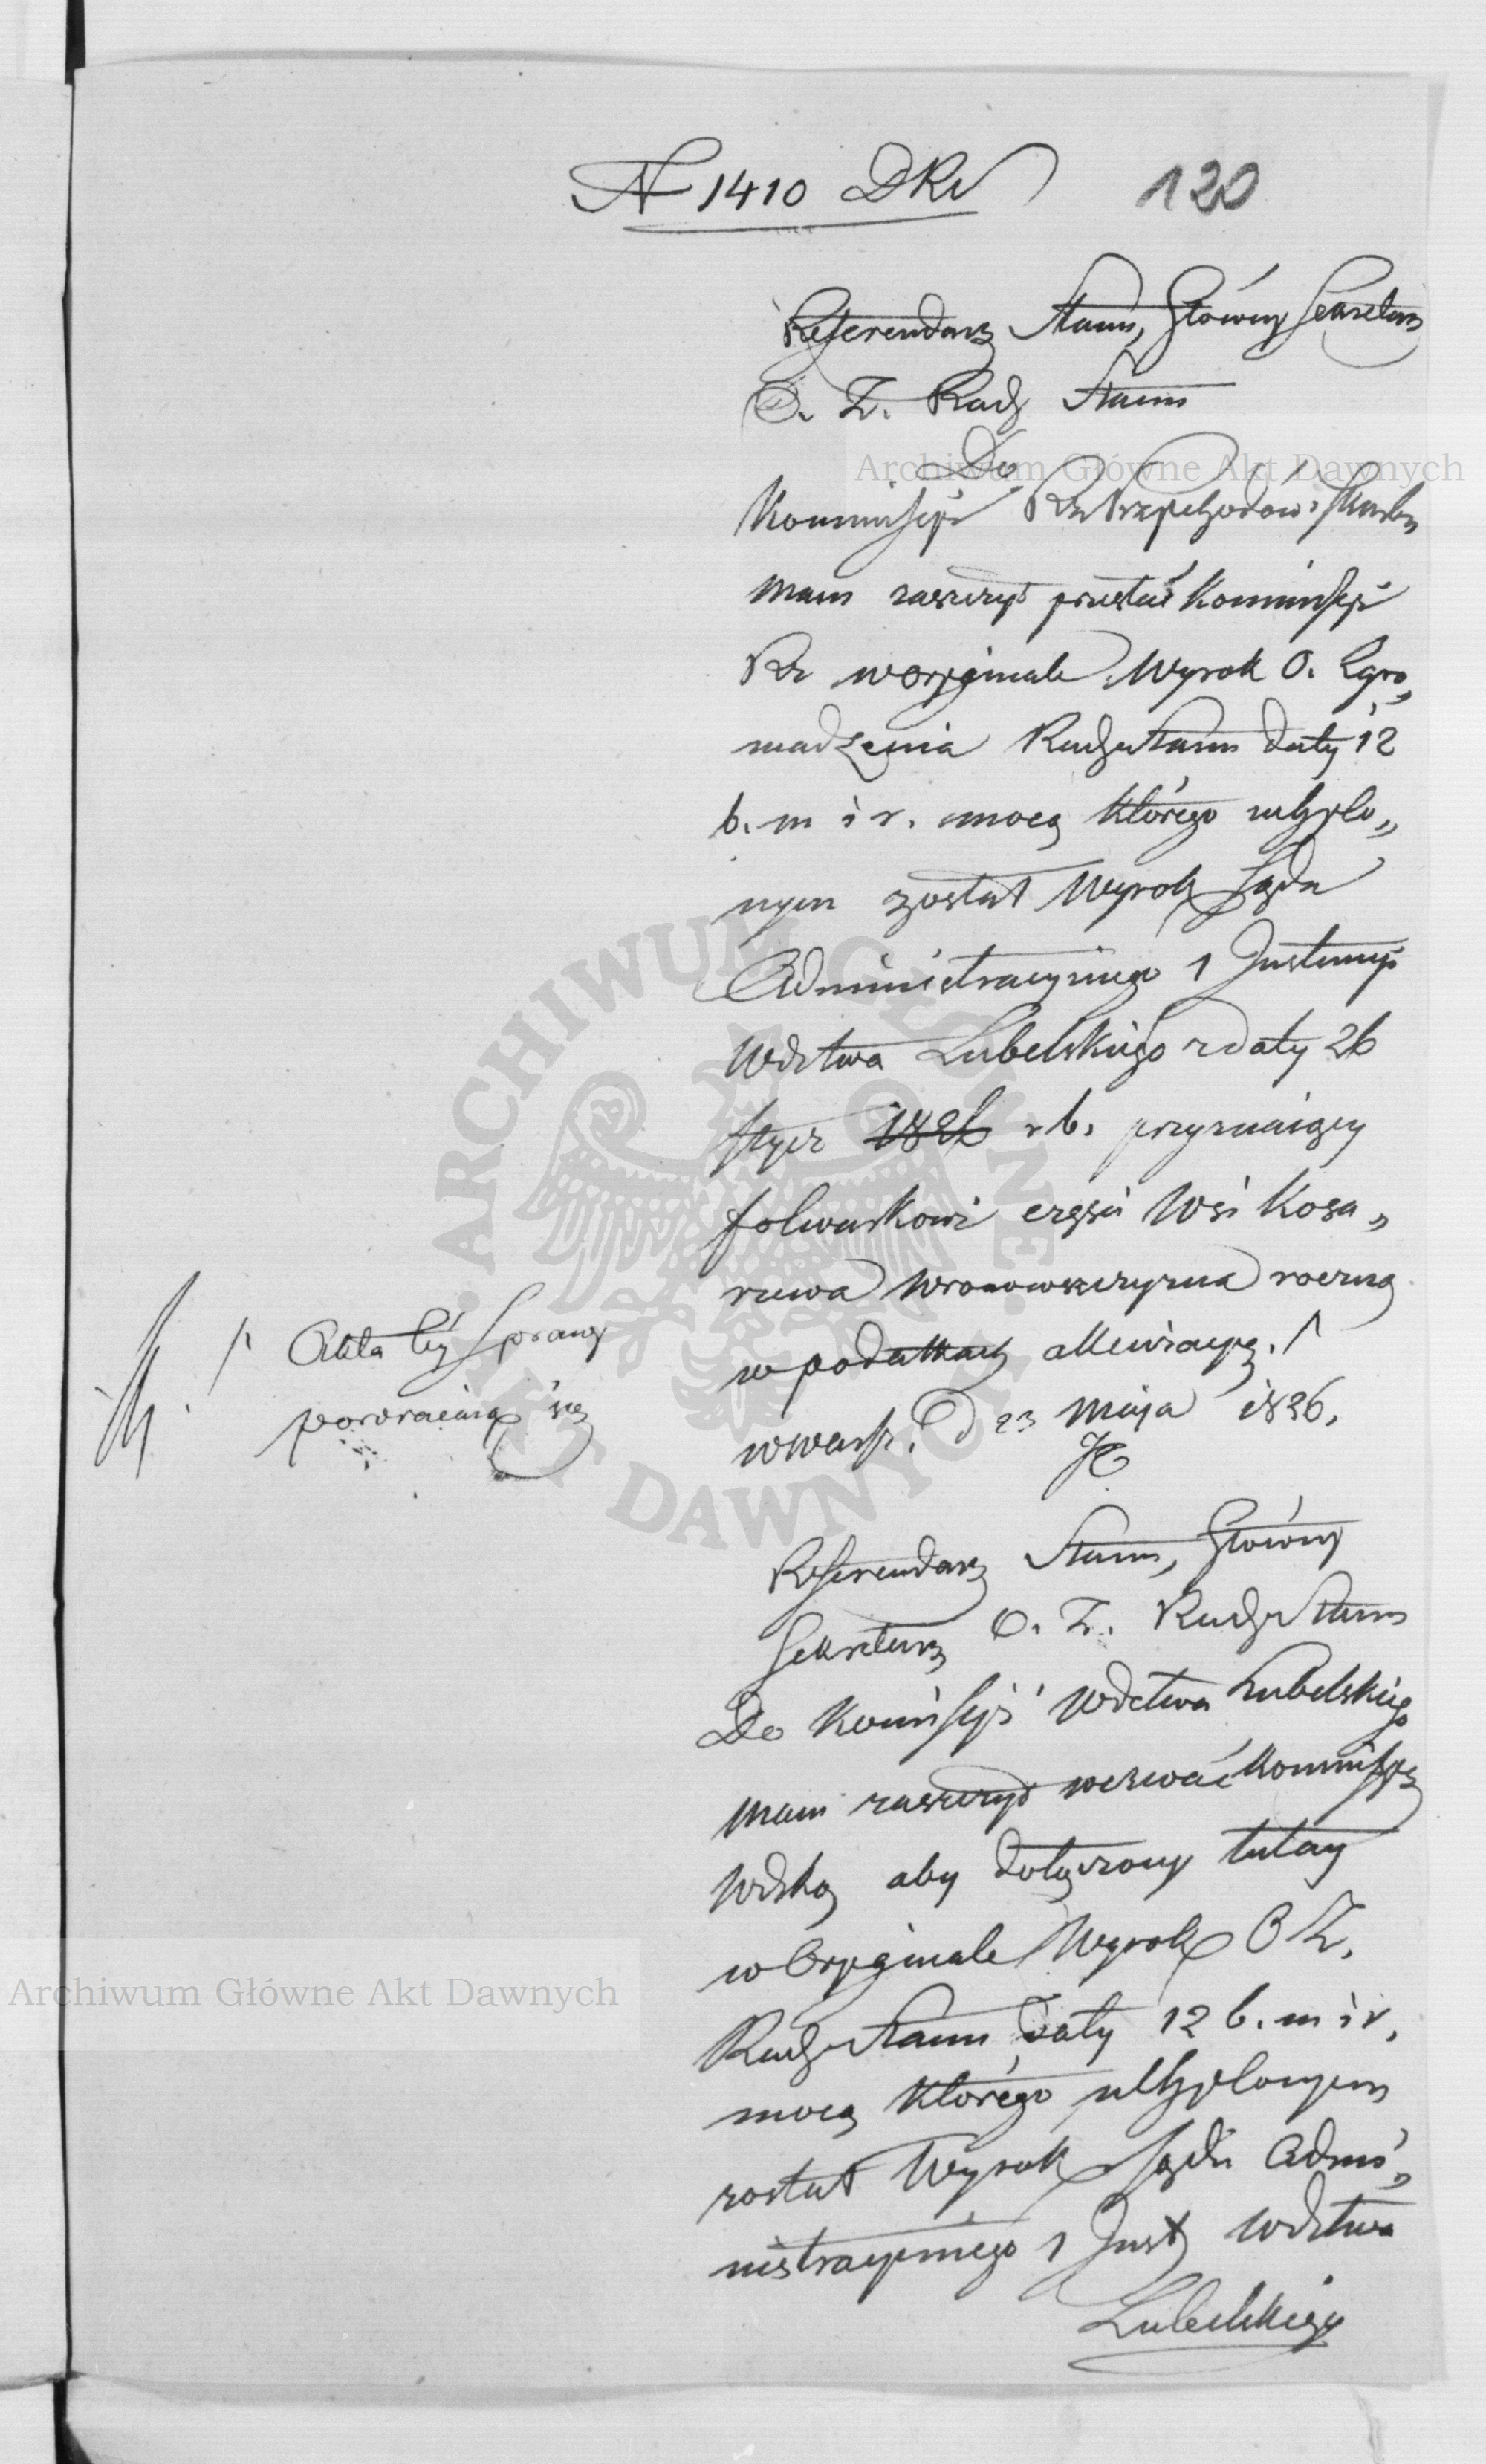 N 1410 DRS
120
Referendarz Stanu, Główny Sekretarz
O. Z. Rady Stanu
Do
Kommissyi Rz Przychodów i Skarbu
Mam zaszczyt przesłać Kommissyi
Rz w oryginale Wyrok O. Zgro„
madzenia Rady Stanu daty 12
b. m i r. mocą którego uchylo„
nym został Wyrok Sądu
Administracyinego 1 Instancyi
Wdztwa Lubelskiego z daty 26
Stycz 1826 r b. przyznaiący
folwarkowi części Wsi Koza„
rzewa Wronowszczyzna roczną
w podatkach allewiacyą. /
w Warsz. D 23 Maja 1826.
/ Akta téy Sprawy
powracaią się
Referendarz Stanu, Główny
Sekretarz O. Z. Rady Stanu
Do Komissyi Wdztwa Lubelskiego
Mam zaszczyt wezwać Kommissyą
Wdzką aby dołączony tutay
w Oryginale Wyrok O Z.
Rady Stanu daty 12 b. m i r.
mocą którego uchylonym
został Wyrok Sądu Admi„
nistracyinego 1 Inst Wdztwa
Lubelskiego
Archiwum Główne Akt Dawnych
Archiwum Główne Akt Dawnych
ARCHIWUM GŁÓWNE AKT DAWNYCH